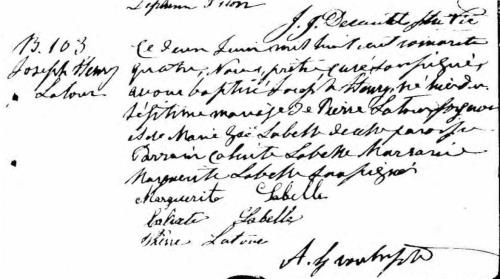 B. 103
Joseph Henry
Latour
Ce deux Juin mil huit cent soixante
quatre, Nous, prêtre curé soussigné,
avons baptisé Joseph Henry, né hier du
légitime mariage de Pierre Latour
et de Marie Zoé Labelle de cette paroisse
Parrain Calixte Labelle Marraine
Marguerite Labelle soussignés
Marguerite Labelle
Calixte Labelle
Pierre Latour